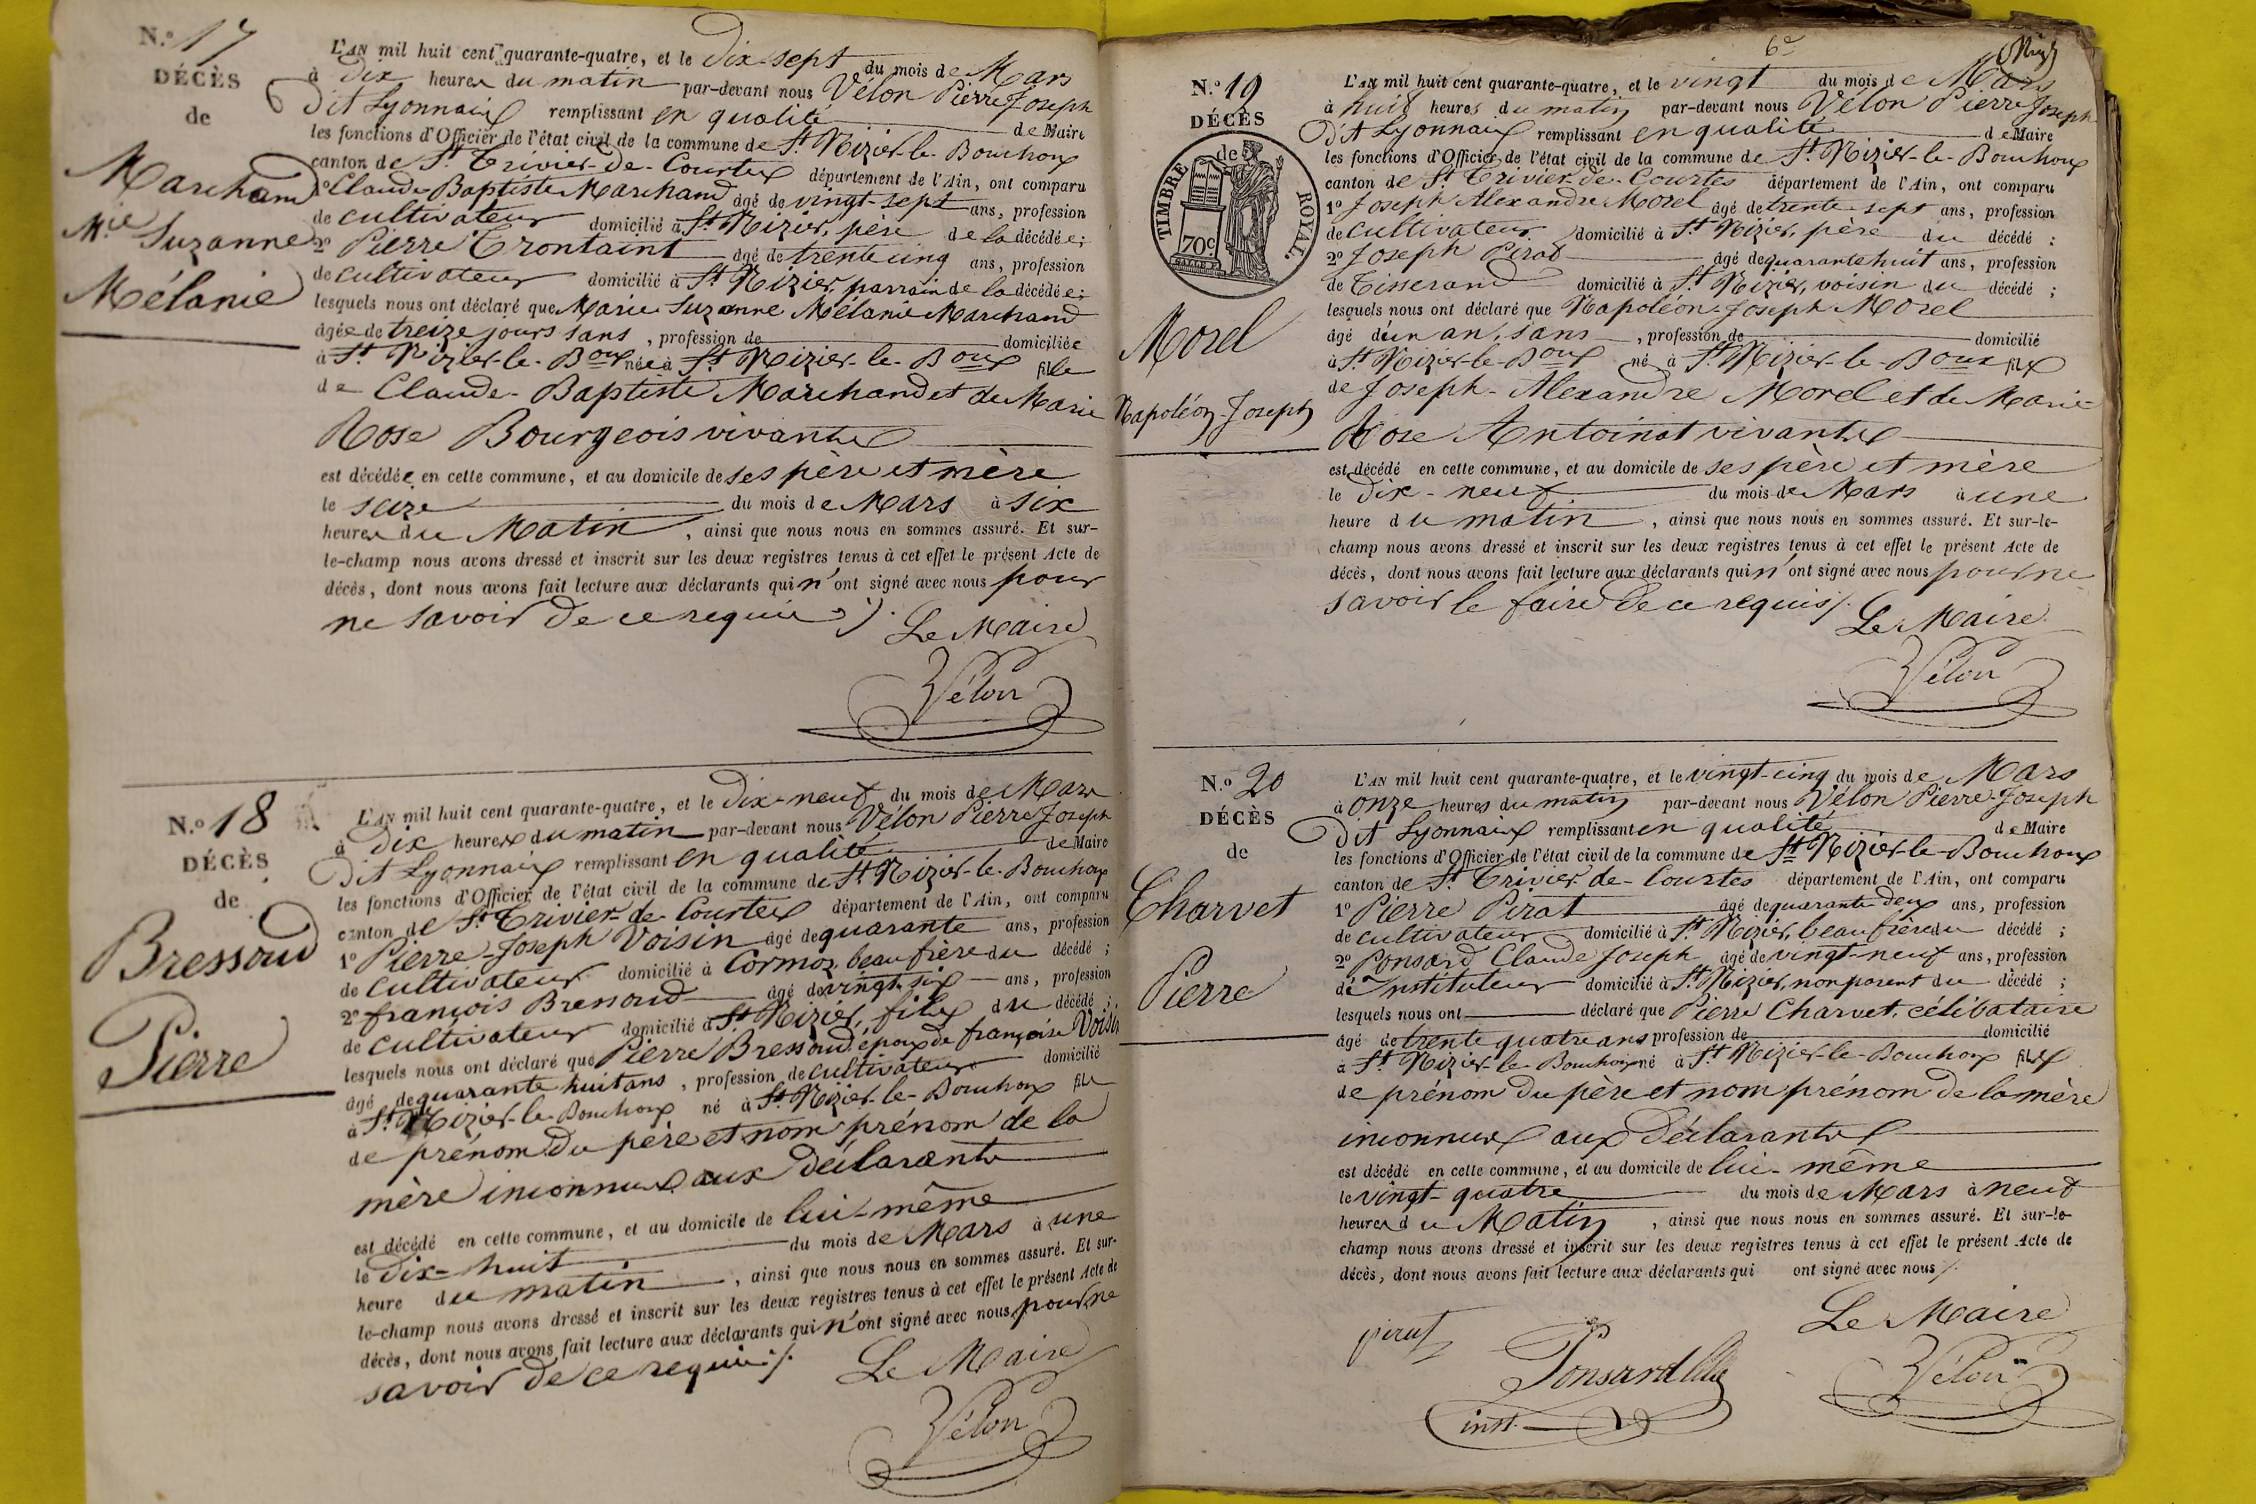 N.o 17
DÉCÈS
de
Marchand
Mie Suzanne
Mélanie
L'AN mil huit cent quarante-quatre, et le Dix-sept du mois de Mars
à Dix heures du matin par-devant nous Vélon Pierre Joseph
Dit Lyonnais remplissant en qualité de Maire
les fonctions d'Officier de l'état civil de la commune de St Nizier-le-Bouchoux
canton de St Trivier-de-Courtes département de l'Ain, ont comparu
1o Claude-Baptiste Marchand âgé de vingt-sept ans, profession
de cultivateur domicilié à St Nizier, père de la décédée;
2o Pierre Trontaint âgé de trente cinq ans, profession
de cultivateur domicilié à St Nizier, parrain de la décédée;
lesquels nous ont déclaré que Marie Suzanne Mélanie Marchand
âgée de treize jours sans, profession de domiciliée
à St Nizier-le-Boux née à St Nizier-le-Boux fille
de Claude-Baptiste Marchand et de Marie
Rose Bourgeois vivants
est décédée en cette commune, et au domicile de ses père et mère
le seize du mois de Mars à six
heures du Matin, ainsi que nous nous en sommes assuré. Et sur-
le-champ nous avons dressé et inscrit sur les deux registres tenus à cet effet le présent Acte de
décès, dont nous avons fait lecture aux déclarants qui n'ont signé avec nous pour
ne savoir de ce requis ./.
Le Maire
Vélon
N.o 18
DÉCÈS
de
Bressoud
Pierre
L'AN mil huit cent quarante-quatre, et le Dix-neuf du mois de Mars
à Dix heures du matin par-devant nous Vélon Pierre Joseph
Dit Lyonnais remplissant en qualité de Maire
les fonctions d'Officier de l'état civil de la commune de St Nizier-le-Bouchoux
canton de St Trivier-de-Courtes département de l'Ain, ont comparu
1o Pierre-Joseph Voisin âgé de quarante ans, profession
de cultivateur domicilié à Cormoz, beau frère du décédé;
2o françois Bressoud âgé de vingt-six ans, profession
de cultivateur domicilié à St Nizier, fils du décédé;
lesquels nous ont déclaré que Pierre Bressoud, époux de françoise Voisin
âgé de quarante huit ans, profession de cultivateur domicilié
à St Nizier-le-Bouchoux né à St Nizier-le-Bouchoux fils
de prénom du père et nom prénom de la
mère inconnus aux déclarants
est décédé en cette commune, et au domicile de lui-même
le Dix-huit du mois de Mars à une
heure du matin, ainsi que nous nous en sommes assuré. Et sur-
le-champ nous avons dressé et inscrit sur les deux registres tenus à cet effet le présent Acte de
décès, dont nous avons fait lecture aux déclarants qui n'ont signé avec nous pour ne
savoir de ce requis ./.
Le Maire
Vélon
6e
N.o 19
DÉCÈS
de
TIMBRE ROYAL.
70c.
Morel
Napoléon-Joseph
L'AN mil huit cent quarante-quatre, et le vingt du mois de Mars
à huit heures du matin par-devant nous Vélon Pierre Joseph
Dit Lyonnais remplissant en qualité de Maire
les fonctions d'Officier de l'état civil de la commune de St Nizier-le-Bouchoux
canton de St Trivier-de-Courtes département de l'Ain, ont comparu
1o Joseph Alexandre Morel âgé de trente-sept ans, profession
de cultivateur domicilié à St Nizier, père du décédé;
2o Joseph Pirat âgé de quarante huit ans, profession
de Tisserand domicilié à St Nizier, voisin du décédé;
lesquels nous ont déclaré que Napoléon-Joseph Morel
âgé d'un an, sans, profession de domicilié
à St Nizier-le-Boux né à St Nizier-le-Boux fils
de Joseph-Alexandre Morel et de Marie-
Rose Antoinat vivants
est décédé en cette commune, et au domicile de ses père et mère
le Dix-neuf du mois de Mars à une
heure du matin, ainsi que nous nous en sommes assuré. Et sur-le-
champ nous avons dressé et inscrit sur les deux registres tenus à cet effet le présent Acte de
décès, dont nous avons fait lecture aux déclarants qui n'ont signé avec nous pour ne
savoir le faire de ce requis ./.
Le Maire
Vélon
N.o 20
DÉCÈS
de
Charvet
Pierre
L'AN mil huit cent quarante-quatre, et le vingt-cinq du mois de Mars
à onze heures du matin par-devant nous Vélon Pierre-Joseph
Dit Lyonnais remplissant en qualité de Maire
les fonctions d'Officier de l'état civil de la commune de St Nizier-le-Bouchoux
canton de St Trivier-de-Courtes département de l'Ain, ont comparu
1o Pierre Pirat âgé de quarante-deux ans, profession
de cultivateur domicilié à St Nizier, beau frère du décédé;
2o Ponsard Claude Joseph âgé de vingt-neuf ans, profession
de Instituteur domicilié à St Nizier, non parent du décédé;
lesquels nous ont déclaré que Pierre Charvet, célibataire
âgé de trente quatre ans profession de domicilié
à St Nizier-le-Bouchoux né à St Nizier-le-Bouchoux fils
de prénom du père et nom prénom de la mère
inconnus aux déclarants
est décédé en cette commune, et au domicile de lui-même
le vingt-quatre du mois de Mars à neuf
heures du Matin, ainsi que nous nous en sommes assuré. Et sur-le-
champ nous avons dressé et inscrit sur les deux registres tenus à cet effet le présent Acte de
décès, dont nous avons fait lecture aux déclarants qui ont signé avec nous ./.
Le Maire
pirat
Ponsard
inst.
Vélon